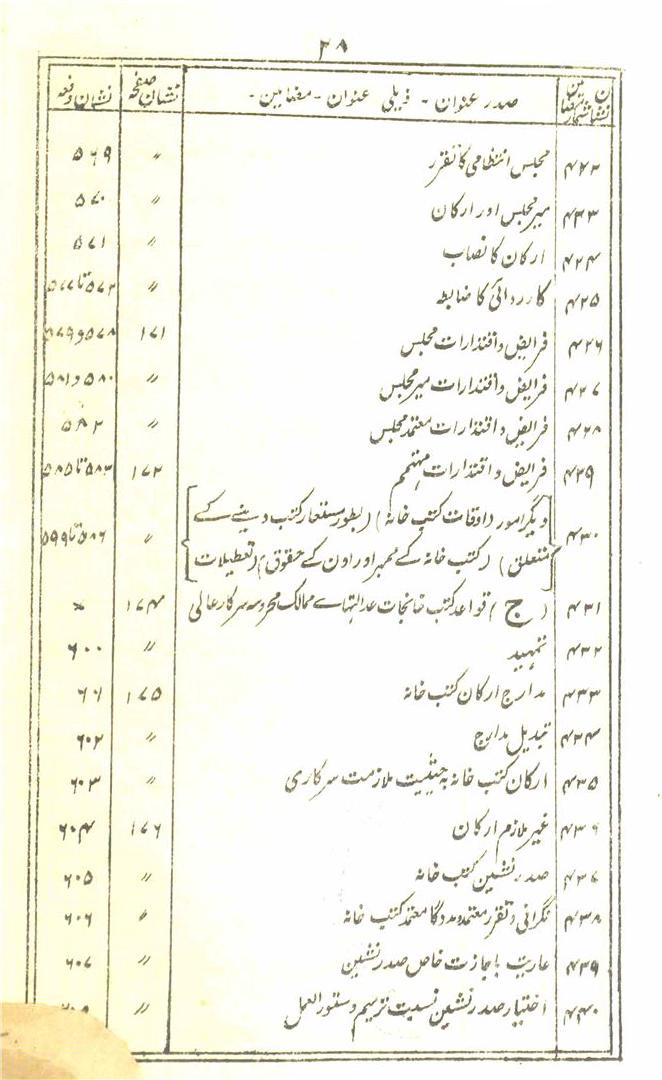 ۳۸
نشان شمار مضامین صدر عنوان - ذیلی عنوان - مضامین - نشان صفحہ نشان دفعہ
۴۲۲ مجلس انتظامی کا تقرر 〃 ۵۶۹
۴۲۳ میر مجلس اور ارکان 〃 ۵۷۰
۴۲۴ ارکان کا نصاب 〃 ۵۷۱
۴۲۵ کارروائی کا ضابطہ 〃 ۵۷۲ تا ۵۷۷
۴۲۶ فرایض و اقتدارات مجلس ۱۷۱ ۵۷۸ و ۵۷۹
۴۲۷ فرایض و اقتدارات میر مجلس 〃 ۵۸۰ و ۵۸۱
۴۲۸ فرایض و اقتدارات معتمد مجلس 〃 ۵۸۲
۴۲۹ فرایض و اقتدارات مہتمم ۱۷۲ ۵۸۳ تا ۵۸۵
۴۳۰ دیگر امور (اوقات کتب خانہ) (بطور مستعار کتب دینے کے
متعلق) (کتب خانہ کے ممبر اور اون کے حقوق) (تعطیلات 〃 ۵۸۶ تا ۵۹۹
۴۳۱ (ج) قواعد کتب خانجات عدالتہاے ممالک محروسہ سرکار عالی ۱۷۴ ×
۴۳۲ تمہید 〃 ۶۰۰
۴۳۳ مدارج ارکان کتب خانہ ۱۷۵ ۶۰۱
۴۳۴ تبدیل مدارج 〃 ۶۰۲
۴۳۵ ارکان کتب خانہ بہ حیثیت ملازمت سرکاری 〃 ۶۰۳
۴۳۶ غیر ملازم ارکان ۱۷۶ ۶۰۴
۴۳۷ صدر نشین کتب خانہ 〃 ۶۰۵
۴۳۸ نگرانی و تقرر معتمد و مددگار معتمد کتب خانہ 〃 ۶۰۶
۴۳۹ عاریت باجازت خاص صدر نشین 〃 ۶۰۷
۴۴۰ اختیار صدر نشین نسبت ترمیم دستور العمل 〃